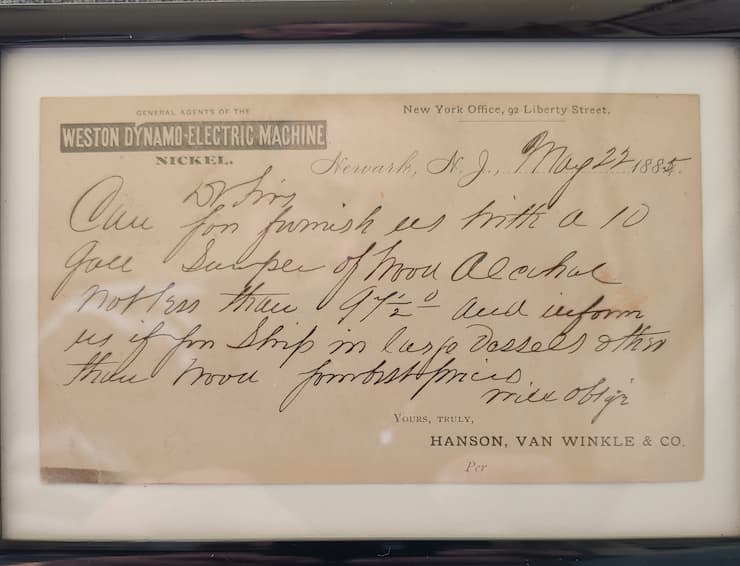 GENERAL AGENTS OF THE
New York Office, 92 Liberty Street.
WESTON DYNAMO-ELECTRIC MACHINE
NICKEL.
Newark, N. J., May 22 1885.
Dr Sirs
Can you furnish us with a 10
Gall Sample of Wood Alcohol
not less than 97½° and inform
us if you Ship in large Vessels other
than Wood your best prices
will oblige
YOURS, TRULY,
HANSON, VAN WINKLE & CO.
Per